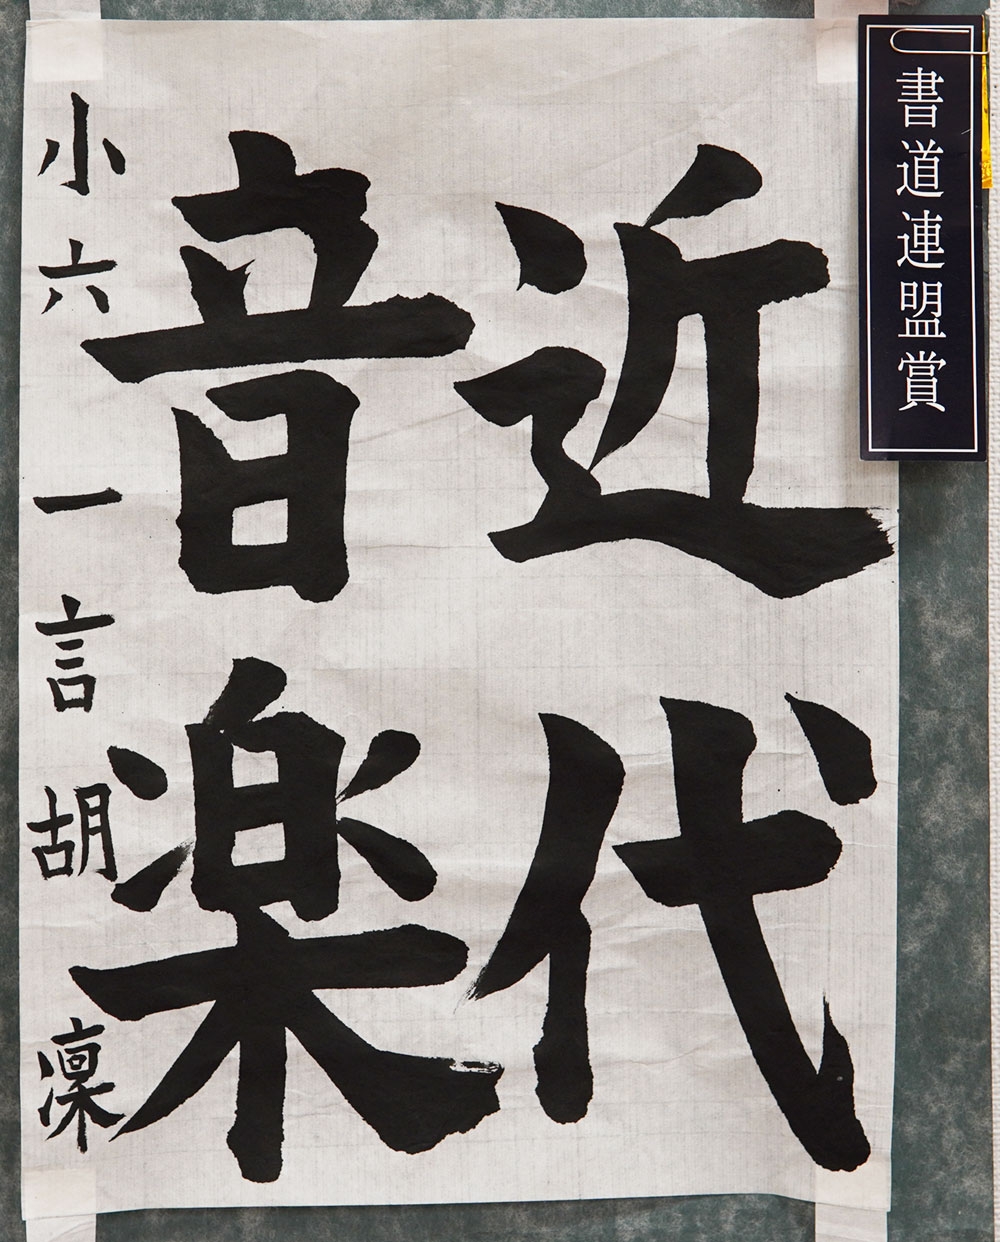 書道連盟賞
近代
音楽
小六 一言胡凜